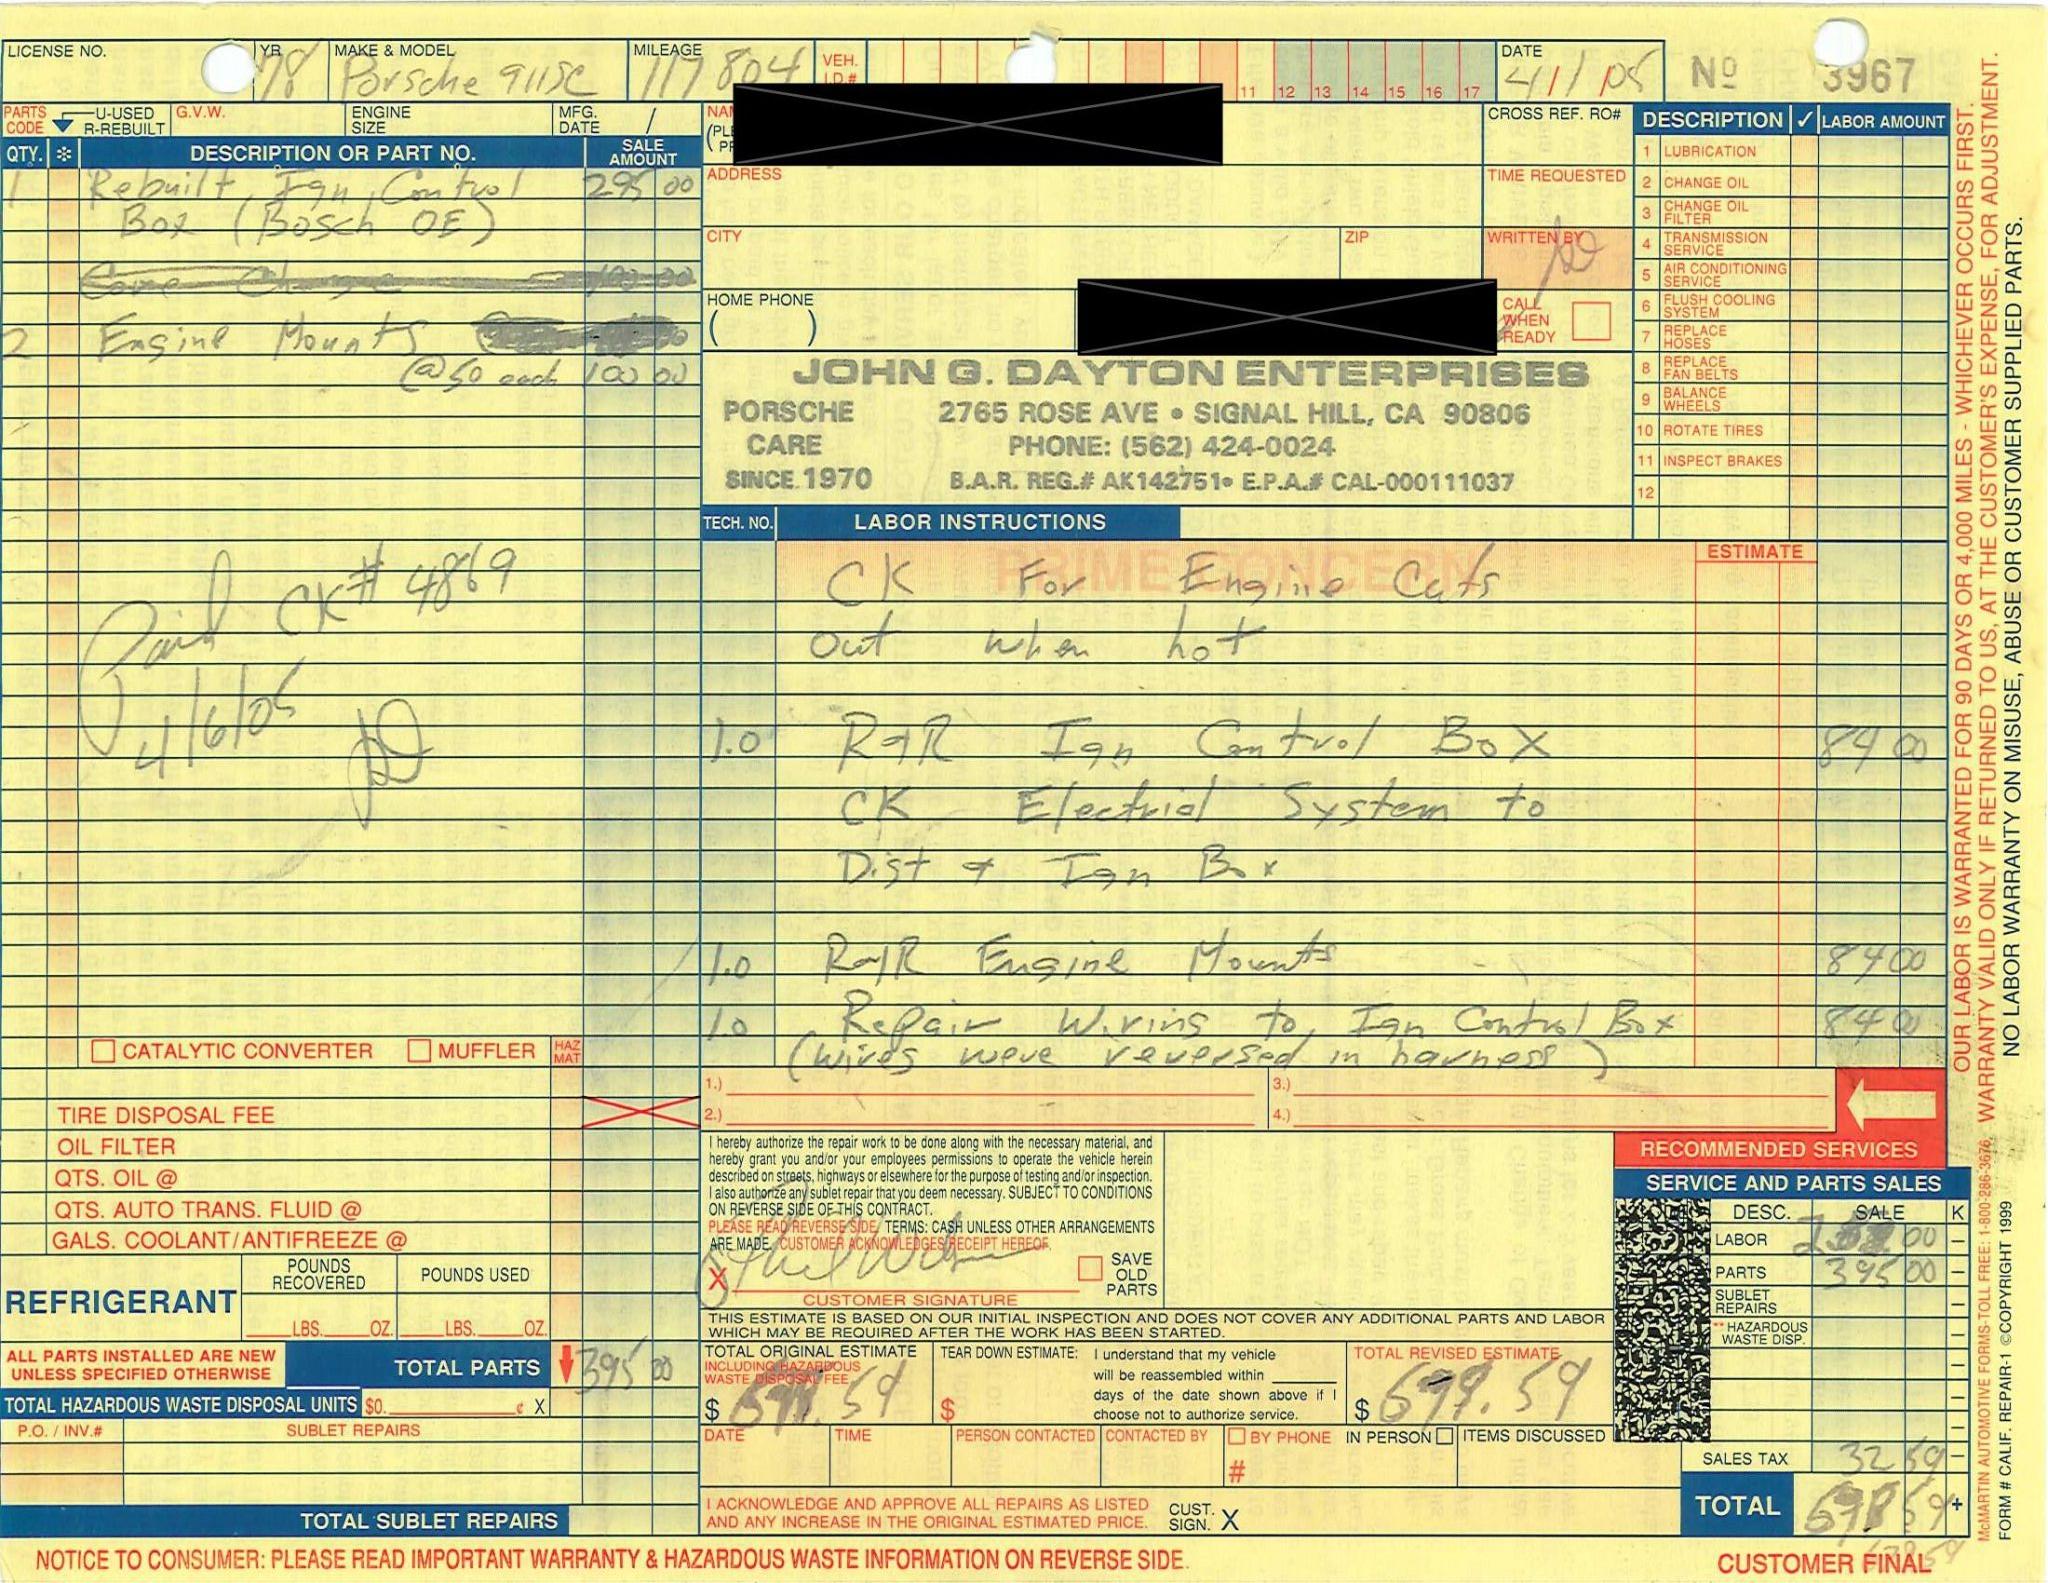 LICENSE NO. YR. 78 MAKE & MODEL Porsche 911SC MILEAGE 117804 VEH. I.D.# 11 12 13 14 15 16 17 DATE 4/1/05 No 3967
PARTS CODE U-USED R-REBUILT G.V.W. ENGINE SIZE MFG. DATE /
QTY. * DESCRIPTION OR PART NO. SALE AMOUNT
1 Rebuilt Ign Control 295 00
Box (Bosch OE)
Core Charge 100 00
2 Engine Mounts
@50 each 100 00
Paid CK# 4869
4/6/05
JD
CATALYTIC CONVERTER MUFFLER HAZ MAT
TIRE DISPOSAL FEE
OIL FILTER
QTS. OIL @
QTS. AUTO TRANS. FLUID @
GALS. COOLANT/ANTIFREEZE @
REFRIGERANT
POUNDS RECOVERED POUNDS USED
LBS. OZ. LBS. OZ.
ALL PARTS INSTALLED ARE NEW
UNLESS SPECIFIED OTHERWISE
TOTAL PARTS 395 00
TOTAL HAZARDOUS WASTE DISPOSAL UNITS $0. ¢ X
P.O. / INV.# SUBLET REPAIRS
TOTAL SUBLET REPAIRS
ADDRESS
CITY ZIP
HOME PHONE
( )
CROSS REF. RO#
TIME REQUESTED
WRITTEN BY JD
CALL WHEN READY
JOHN G. DAYTON ENTERPRISES
PORSCHE 2765 ROSE AVE • SIGNAL HILL, CA 90806
CARE PHONE: (562) 424-0024
SINCE 1970 B.A.R. REG.# AK142751• E.P.A.# CAL-000111037
DESCRIPTION ✓ LABOR AMOUNT
1 LUBRICATION
2 CHANGE OIL
3 CHANGE OIL FILTER
4 TRANSMISSION SERVICE
5 AIR CONDITIONING SERVICE
6 FLUSH COOLING SYSTEM
7 REPLACE HOSES
8 REPLACE FAN BELTS
9 BALANCE WHEELS
10 ROTATE TIRES
11 INSPECT BRAKES
12
TECH. NO. LABOR INSTRUCTIONS
PRIME CONCERN
ESTIMATE
CK For Engine Cuts
Out when hot
1.0 R&R Ign Control Box 84 00
CK Electrial System to
Dist & Ign Box
1.0 R&R Engine Mounts 84 00
1.0 Repair Wiring to Ign Control Box 84 00
(wires were reversed in harness)
1.) 3.)
2.) 4.)
RECOMMENDED SERVICES
I hereby authorize the repair work to be done along with the necessary material, and
hereby grant you and/or your employees permissions to operate the vehicle herein
described on streets, highways or elsewhere for the purpose of testing and/or inspection.
I also authorize any sublet repair that you deem necessary. SUBJECT TO CONDITIONS
ON REVERSE SIDE OF THIS CONTRACT.
PLEASE READ REVERSE SIDE. TERMS: CASH UNLESS OTHER ARRANGEMENTS
ARE MADE. CUSTOMER ACKNOWLEDGES RECEIPT HEREOF.
X
CUSTOMER SIGNATURE
SAVE OLD PARTS
THIS ESTIMATE IS BASED ON OUR INITIAL INSPECTION AND DOES NOT COVER ANY ADDITIONAL PARTS AND LABOR
WHICH MAY BE REQUIRED AFTER THE WORK HAS BEEN STARTED.
TOTAL ORIGINAL ESTIMATE
INCLUDING HAZARDOUS
WASTE DISPOSAL FEE
$
TEAR DOWN ESTIMATE:
$
I understand that my vehicle
will be reassembled within
days of the date shown above if I
choose not to authorize service.
TOTAL REVISED ESTIMATE
$
DATE TIME PERSON CONTACTED CONTACTED BY BY PHONE IN PERSON ITEMS DISCUSSED
#
I ACKNOWLEDGE AND APPROVE ALL REPAIRS AS LISTED
AND ANY INCREASE IN THE ORIGINAL ESTIMATED PRICE.
CUST. SIGN. X
SERVICE AND PARTS SALES
DESC. SALE K
LABOR
PARTS 395 00
SUBLET REPAIRS
** HAZARDOUS WASTE DISP.
SALES TAX 32 59
TOTAL
NOTICE TO CONSUMER: PLEASE READ IMPORTANT WARRANTY & HAZARDOUS WASTE INFORMATION ON REVERSE SIDE.
CUSTOMER FINAL
OUR LABOR IS WARRANTED FOR 90 DAYS OR 4,000 MILES - WHICHEVER OCCURS FIRST.
WARRANTY VALID ONLY IF RETURNED TO US, AT THE CUSTOMER'S EXPENSE, FOR ADJUSTMENT.
NO LABOR WARRANTY ON MISUSE, ABUSE OR CUSTOMER SUPPLIED PARTS.
McMARTIN AUTOMOTIVE FORMS-TOLL FREE: 1-800-286-3676
FORM # CALIF. REPAIR-1 ©COPYRIGHT 1999